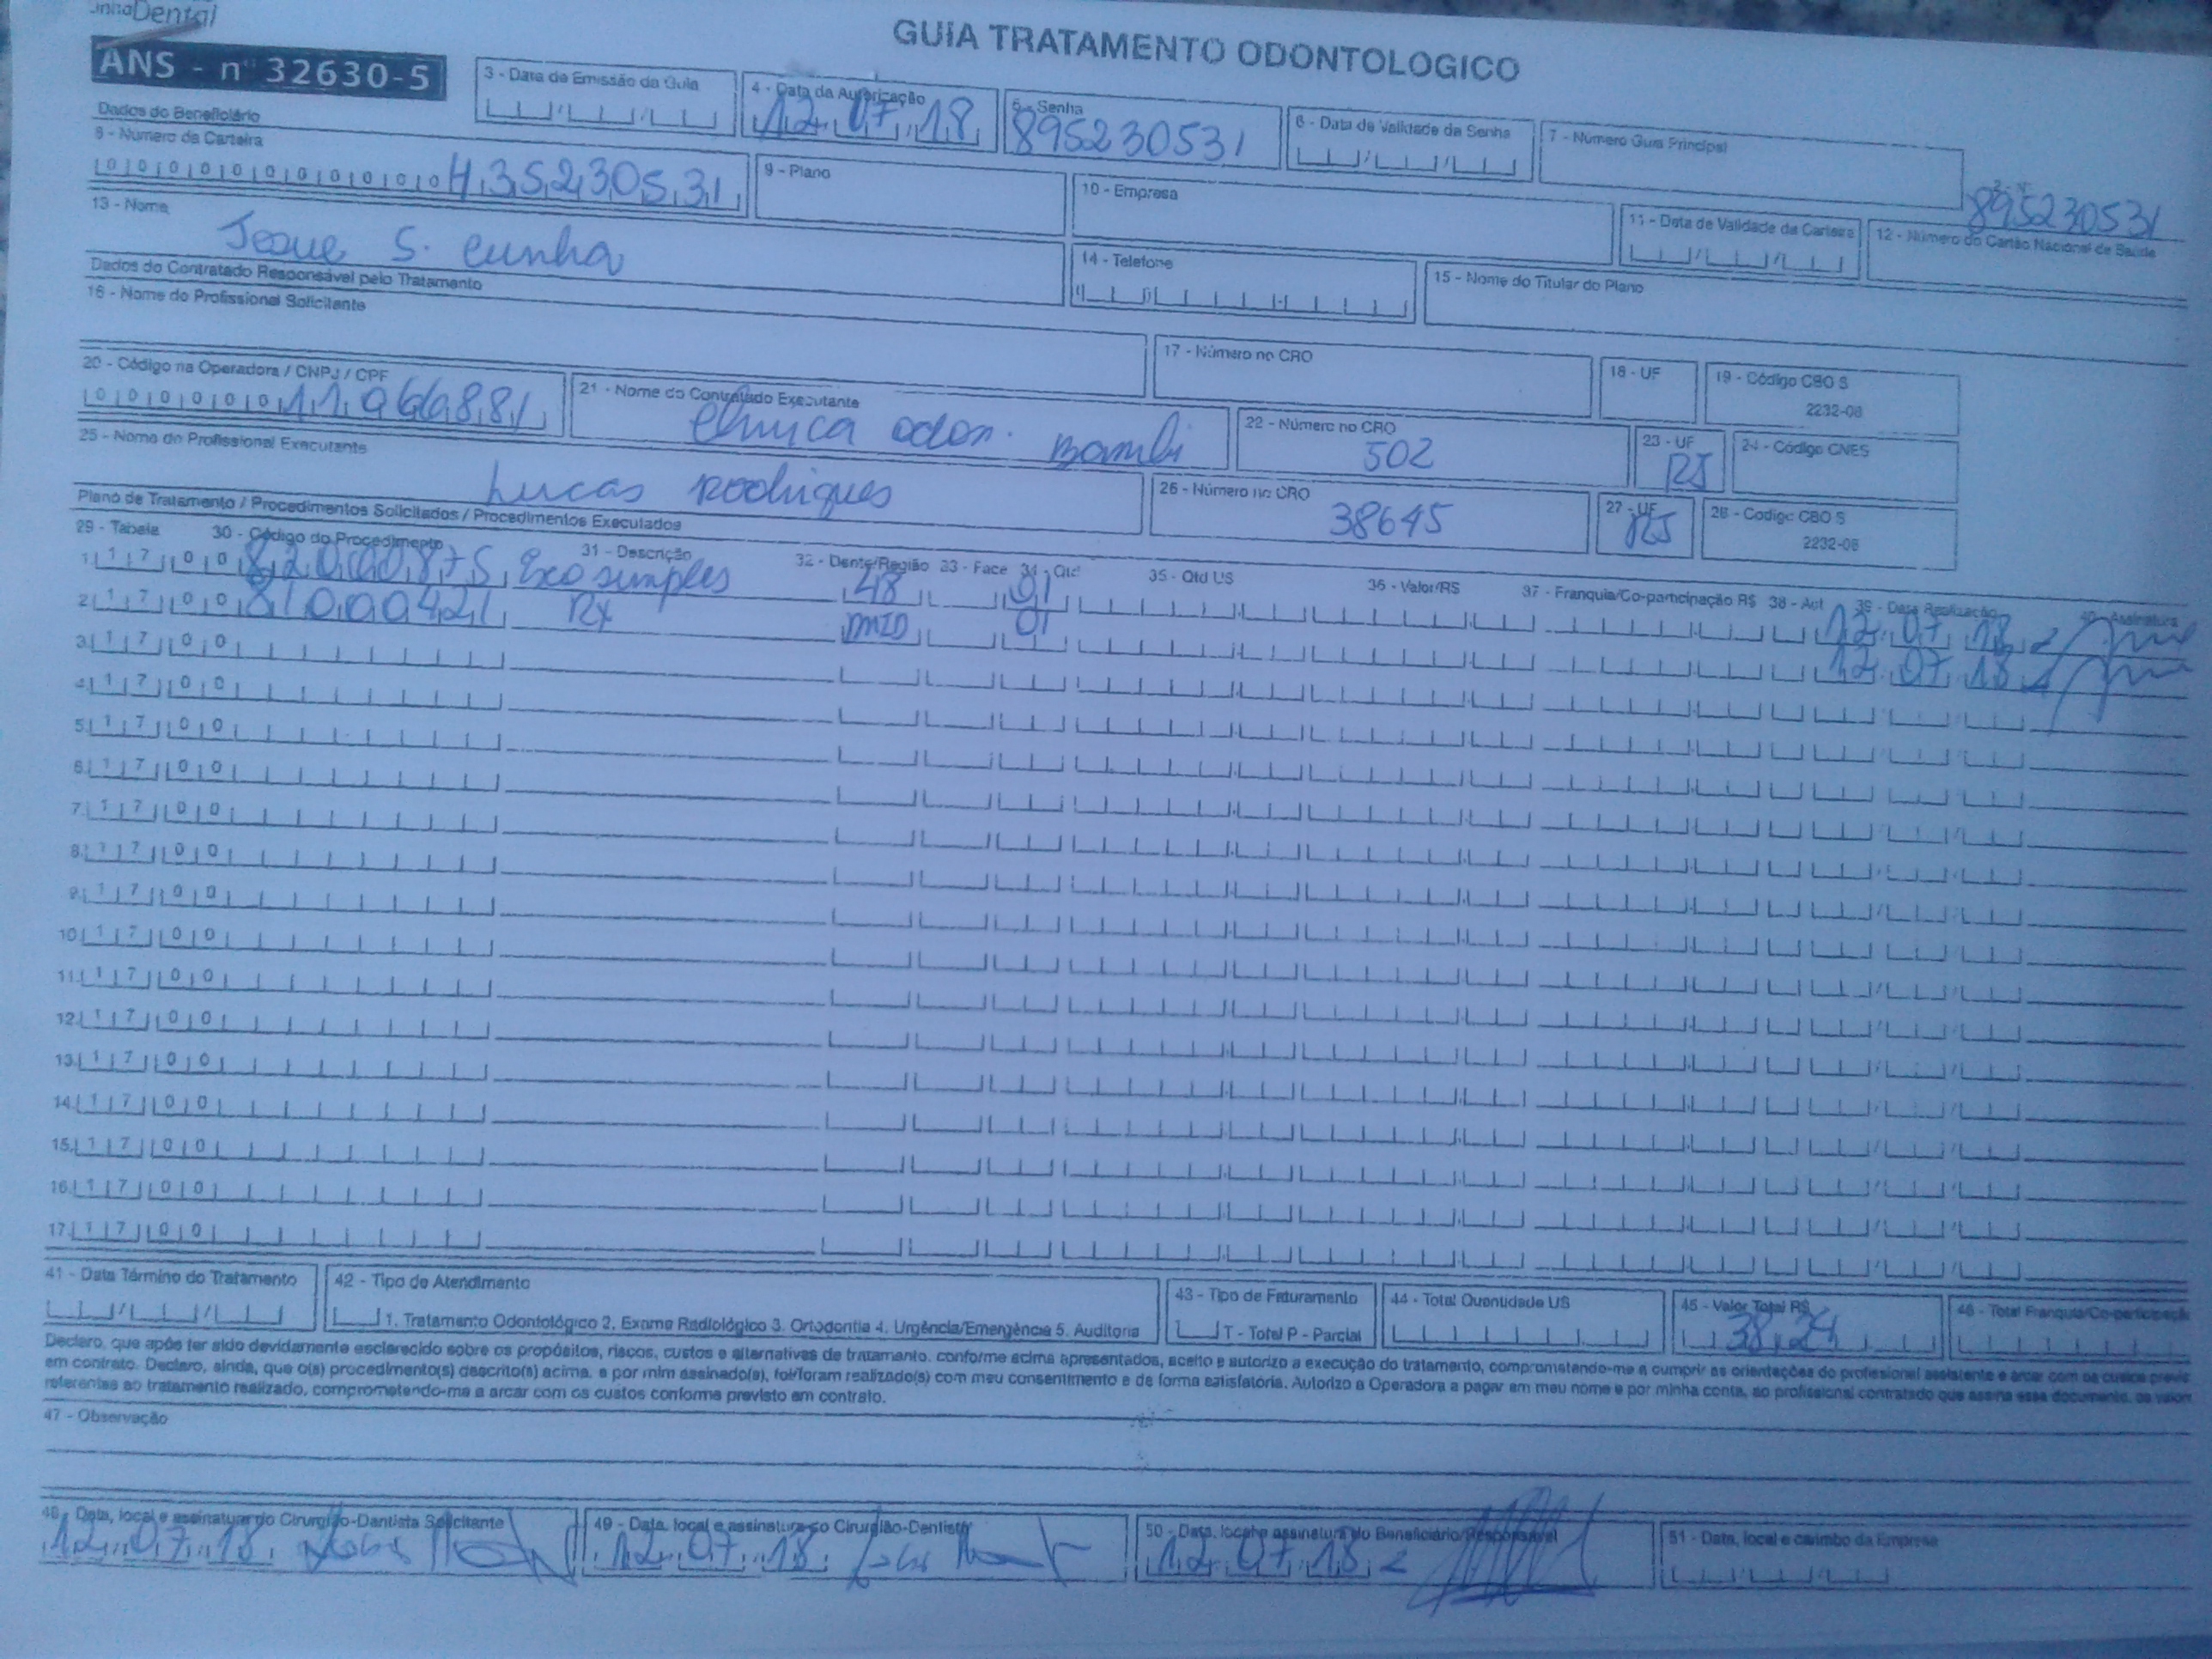 Dental
ANS - nº 32630-5
GUIA TRATAMENTO ODONTOLOGICO
3 - Data de Emissão da Guia
4 - Data da Autorização
12 07 18
5 - Senha
895230531
6 - Data de Validade da Senha
7 - Numero Guia Principal
895230531
Dados do Beneficiário
8 - Numero da Carteira
9 - Plano
10 - Empresa
11 - Data de Validade da Carteira
12 - Número do Cartão Nacional de Saúde
13 - Nome
14 - Telefone
15 - Nome do Titular do Plano
Dados do Contratado Responsável pelo Tratamento
16 - Nome do Profissional Solicitante
17 - Número no CRO
18 - UF
19 - Código CBO S
2232-08
20 - Código na Operadora / CNPJ / CPF
21 - Nome do Contratado Executante
22 - Número no CRO
502
23 - UF
RJ
24 - Código CNES
25 - Nome do Profissional Executante
Lucas Rodrigues
26 - Número no CRO
38645
27 - UF
RJ
28 - Codigo CBO S
2232-08
Plano de Tratamento / Procedimentos Solicitados / Procedimentos Executados
29 - Tabela 30 - Código do Procedimento 31 - Descrição 32 - Dente/Região 33 - Face 34 - Qtd 35 - Qtd US 36 - Valor/R$ 37 - Franquia/Co-participação R$ 38 - Aut 39 - Data Realização 40 - Assinatura
1 1 7 0 0 82000875 Exo simples 48 01 12 07 18
2 1 7 0 0 81000421 RX 01 12 07 18
3 1 7 0 0
4 1 7 0 0
5 1 7 0 0
6 1 7 0 0
7 1 7 0 0
8 1 7 0 0
9 1 7 0 0
10 1 7 0 0
11 1 7 0 0
12 1 7 0 0
13 1 7 0 0
14 1 7 0 0
15 1 7 0 0
16 1 7 0 0
17 1 7 0 0
41 - Data Término do Tratamento
42 - Tipo de Atendimento
1. Tratamento Odontológico 2. Exame Radiológico 3. Ortodontia 4. Urgência/Emergência 5. Auditoria
43 - Tipo de Faturamento
T - Total P - Parcial
44 - Total Quantidade US
45 - Valor Total R$
46 - Total Franquia/Co-participação
Declaro, que após ter sido devidamente esclarecido sobre os propósitos, riscos, custos e alternativas de tratamento, conforme acima apresentados, aceito e autorizo a execução do tratamento, comprometendo-me a cumprir as orientações do profissional assistente e arcar com os custos
em contrato. Declaro, ainda, que o(s) procedimento(s) descrito(s) acima, e por mim assinado(s), foi/foram realizado(s) com meu consentimento e de forma satisfatória. Autorizo a Operadora a pagar em meu nome e por minha conta, ao profissional contratado que assina esse documento, os
referentes ao tratamento realizado, comprometendo-me a arcar com os custos conforme previsto em contrato.
47 - Observação
48 - Data, local e assinatura do Cirurgião-Dentista Solicitante
12 07 18
49 - Data, local e assinatura do Cirurgião-Dentista
12 07 18
50 - Data, local e assinatura do Beneficiário/Responsável
12 07 18
51 - Data, local e carimbo da Empresa